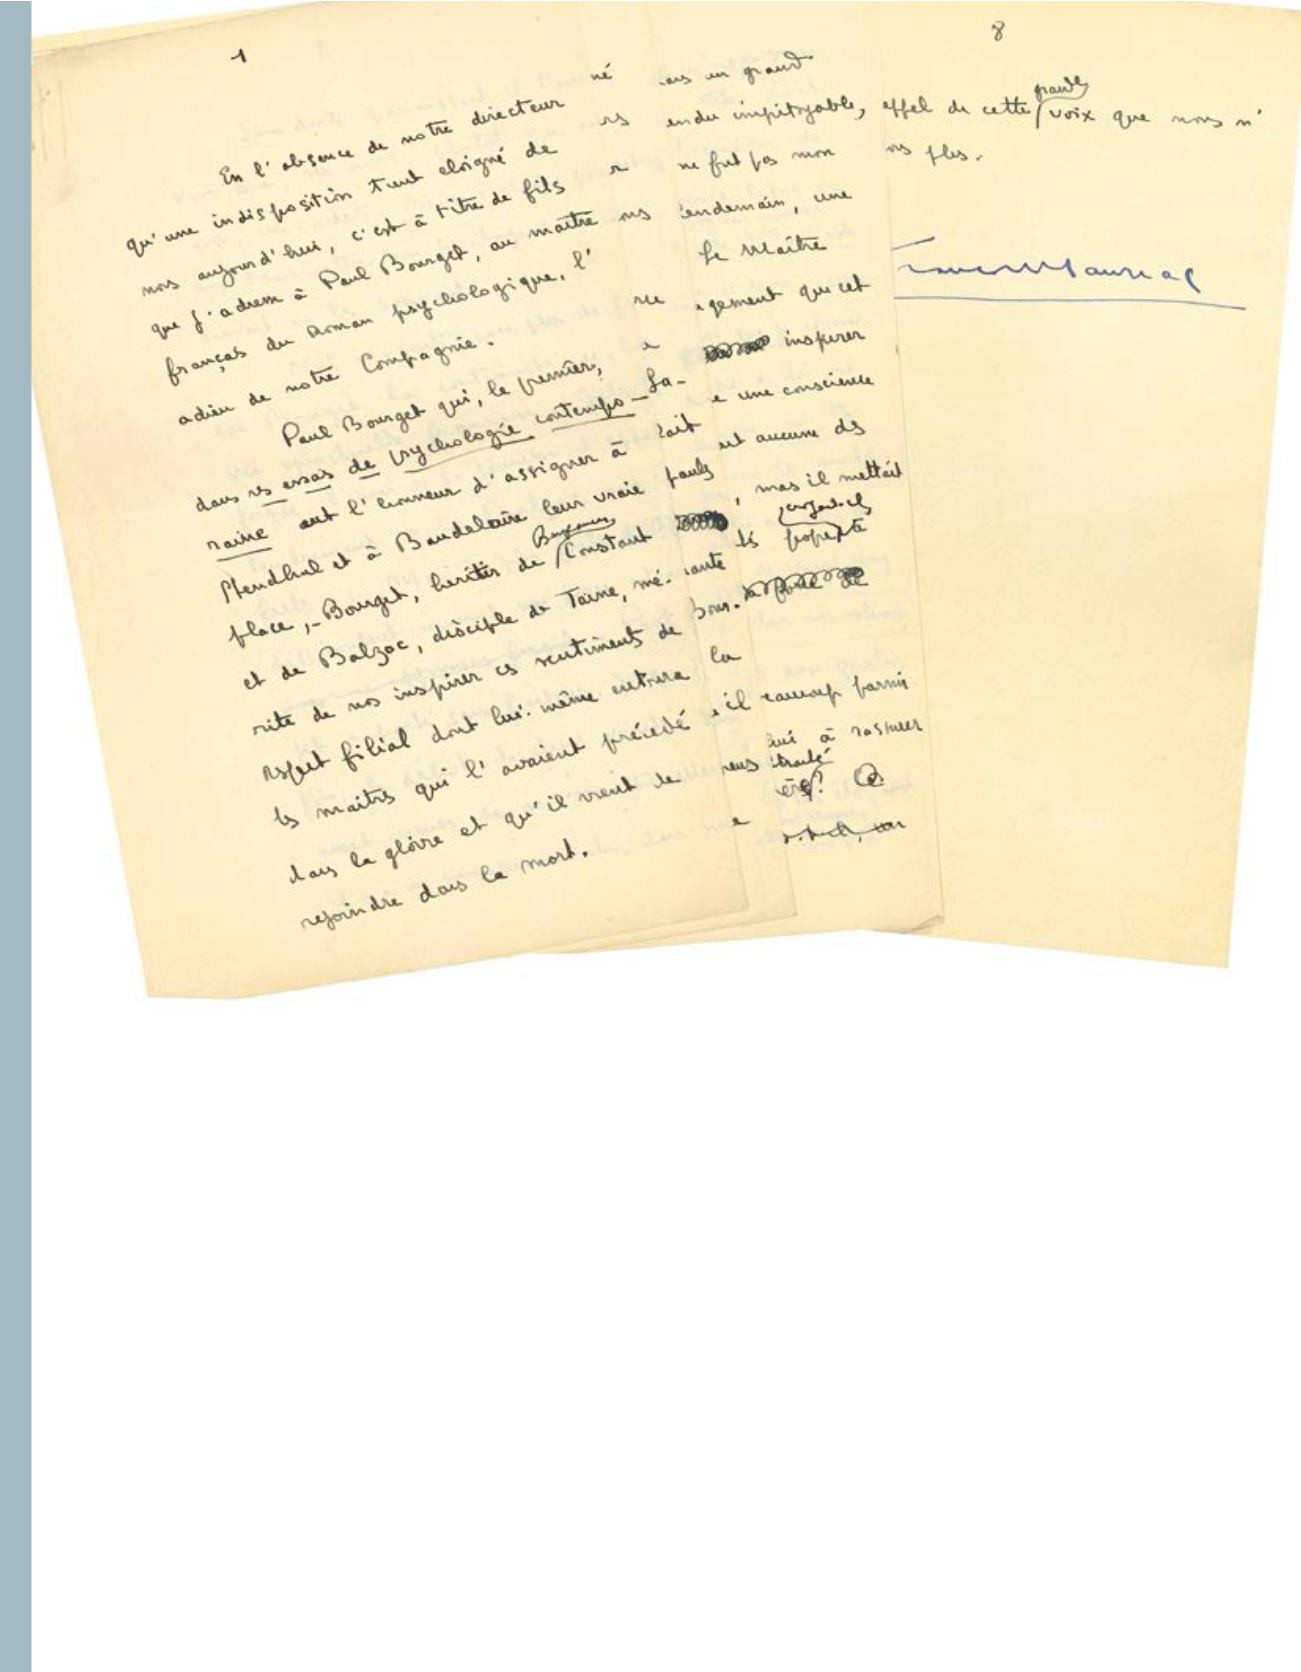 1
En l'absence de notre directeur
qu'une indisposition tient eloigné de
nous aujourd'hui, c'est à titre de fils
que j'adresse à Paul Bourget, au maître
français du roman psychologique, l'
adieu de notre Compagnie.
Paul Bourget qui, le premier,
dans ses essais de psychologie contempo-
raine eut l'honneur d'assigner à
Stendhal et à Baudelaire leur vraie
place, - Bourget, héritier de Benjamin Constant
et de Balzac, disciple de Taine, mé-
rite de nous inspirer ces sentiments de
respect filial dont lui-même entoura
les maîtres qui l'avaient précédé
dans la gloire et qu'il vient de
rejoindre dans la mort.
né
la
il
un grand
endu impitoyable,
ne fut pas mon
lendemain, une
Le Maître
gement que cet
inspirer
e une conscience
ut aucune des
, mais il mettait
les
parmi
à rassurer
8
appel de cette grande voix que nous n'
ns plus.
François Mauriac